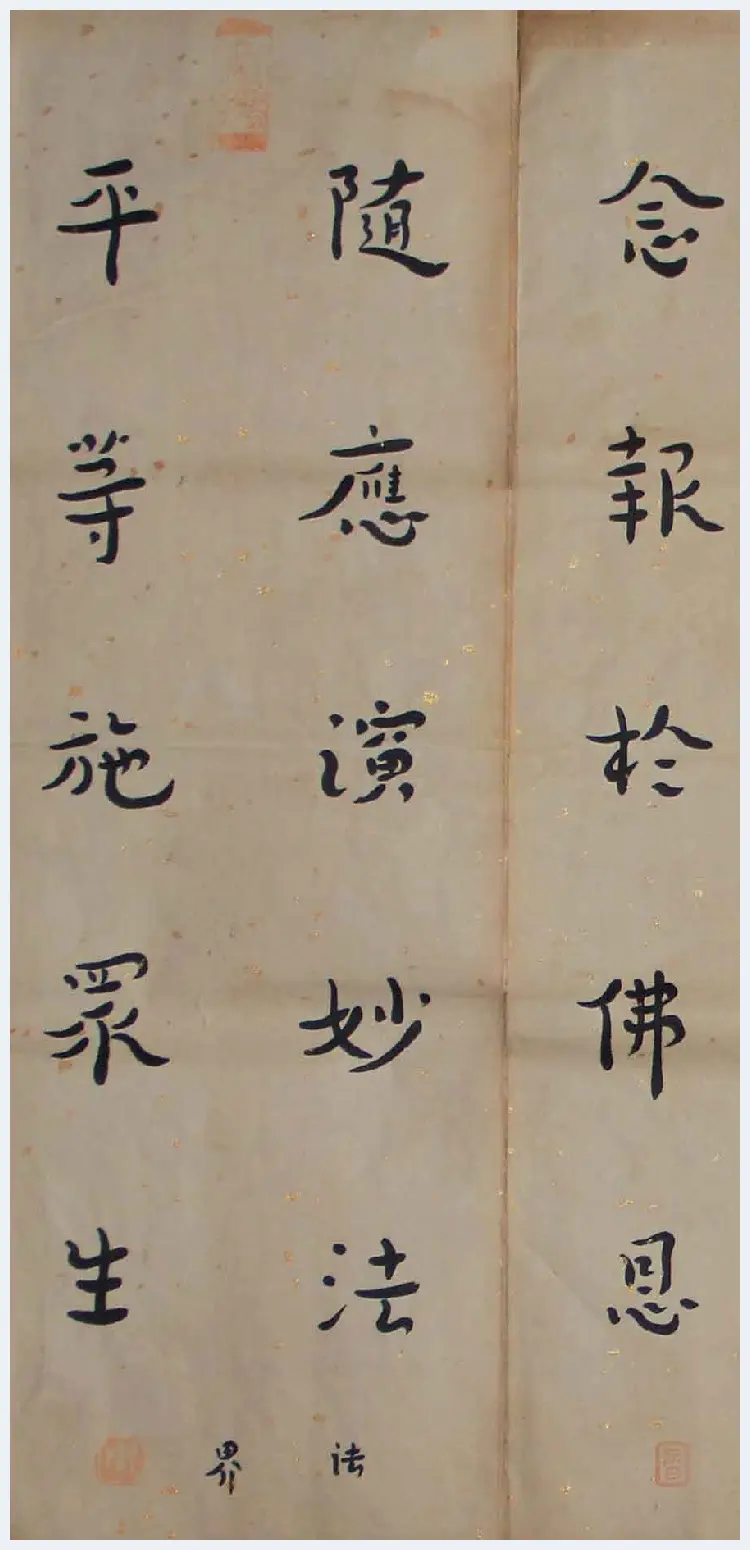 念報於佛恩
隨應演妙法
平等施眾生
法界